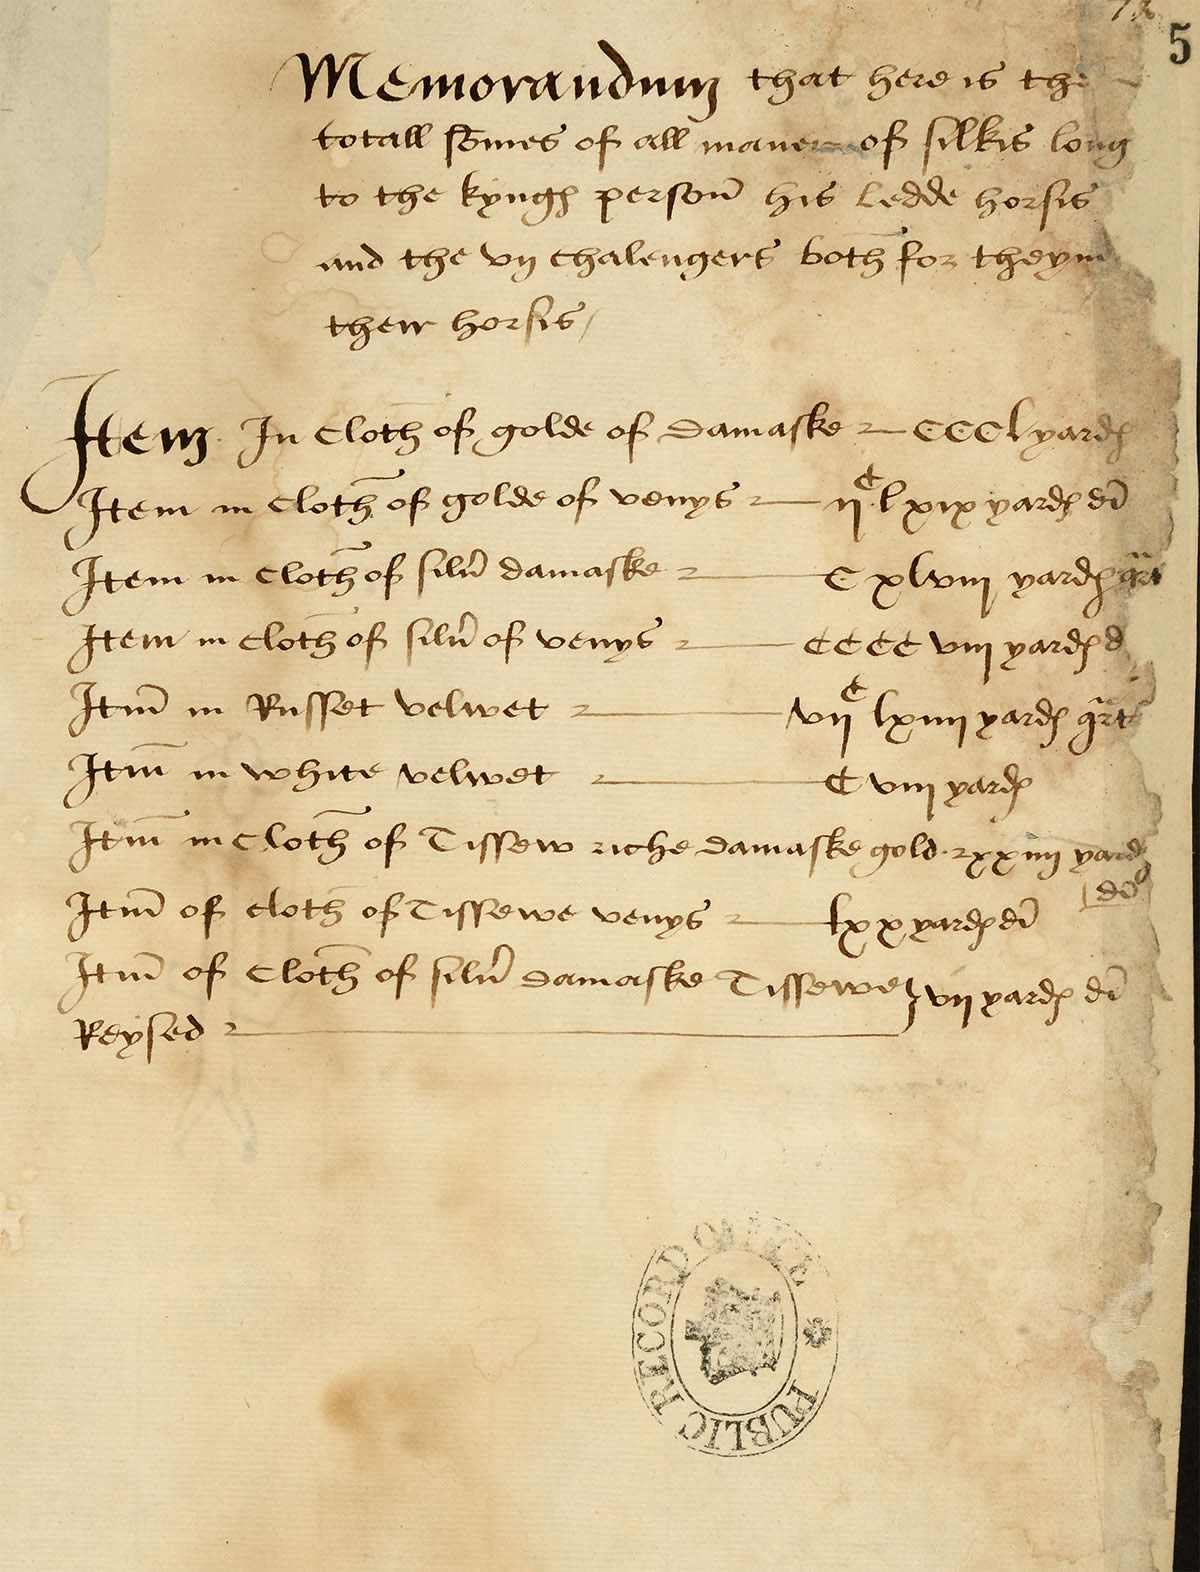 5
Memorandum that here is the
totall som̃es of all maner of silkis long
to the kyngꝭ person̄ his ledde horsis
and the vij chalengers both̄ for theym
their horsis /
Item In Cloth̄ of golde of damaske — CCCl yardꝭ
Item in Cloth̄ of golde of venys — ijᶜ lxix yardꝭ dī
Item in Cloth̄ of silũ damaske — C xlviij yardꝭ qᵃrt
Item in cloth̄ of silũ of venys — CCCC viij yardꝭ d
Itm̄ in Russet velwet — vijᶜ lxiiij yardꝭ qᵃrt
Itm̄ in white velwet — C viij yardꝭ
Itm̄ in Cloth̄ of Tissew riche damaske gold xxiiij yardꝭ
dī
Itm̄ of cloth̄ of Tissewe venys — lxx yardꝭ dī
Itm̄ of Cloth̄ of silũ damaske Tissewe } vij yardꝭ dī
Reysed —
PUBLIC RECORD OFFICE